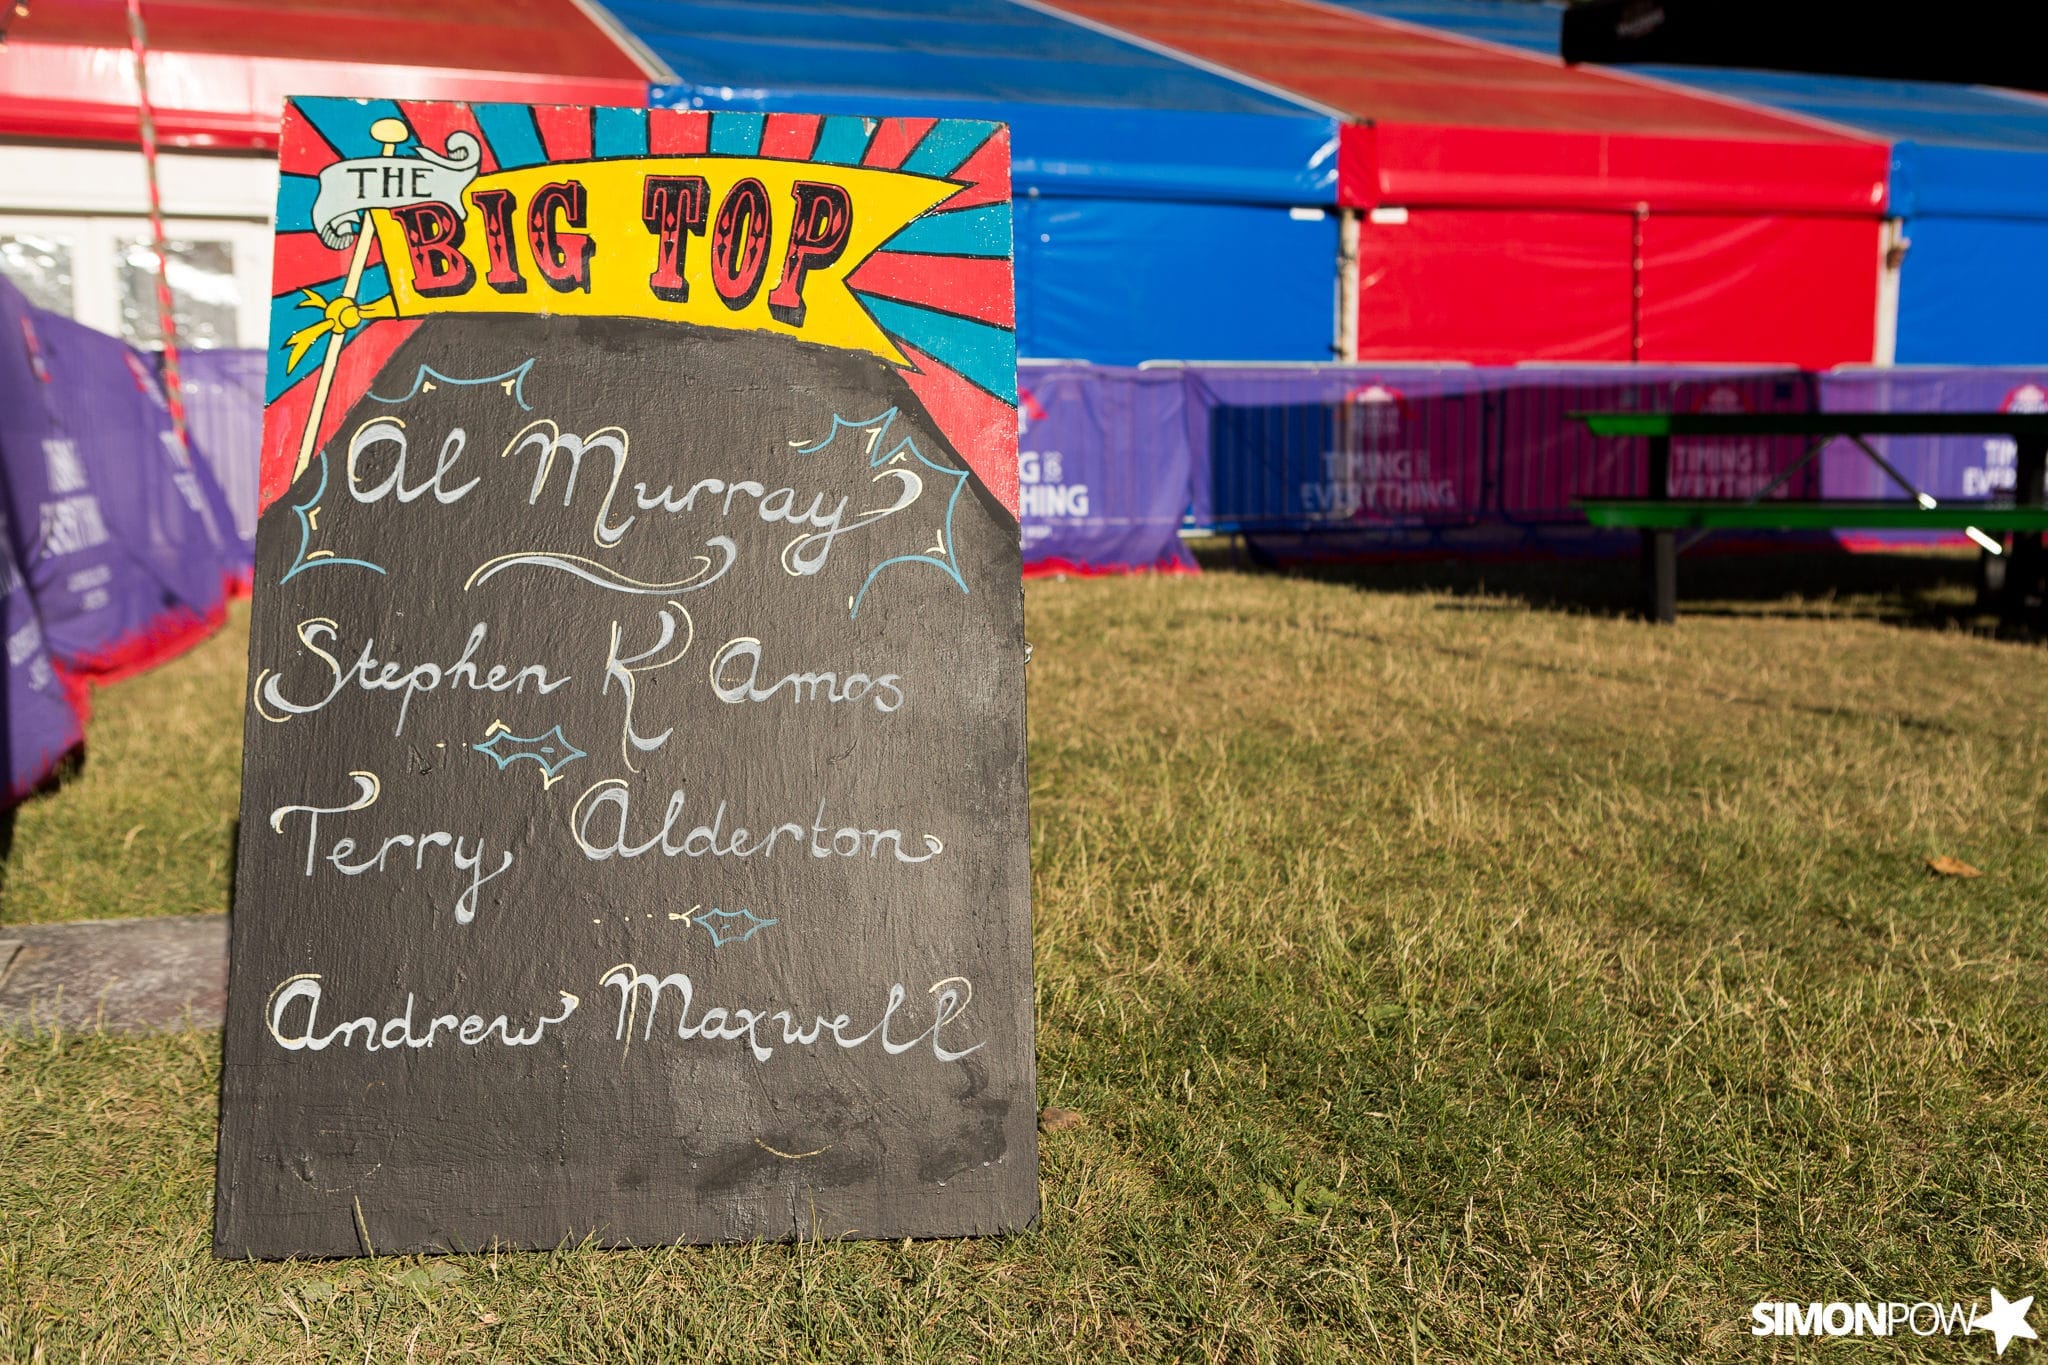 THE
BIG TOP
Al Murray
Stephen K Amos
Terry Alderton
Andrew Maxwell
TIMING IS
EVERYTHING
TIMING IS
EVERYTHING
SIMONPOW